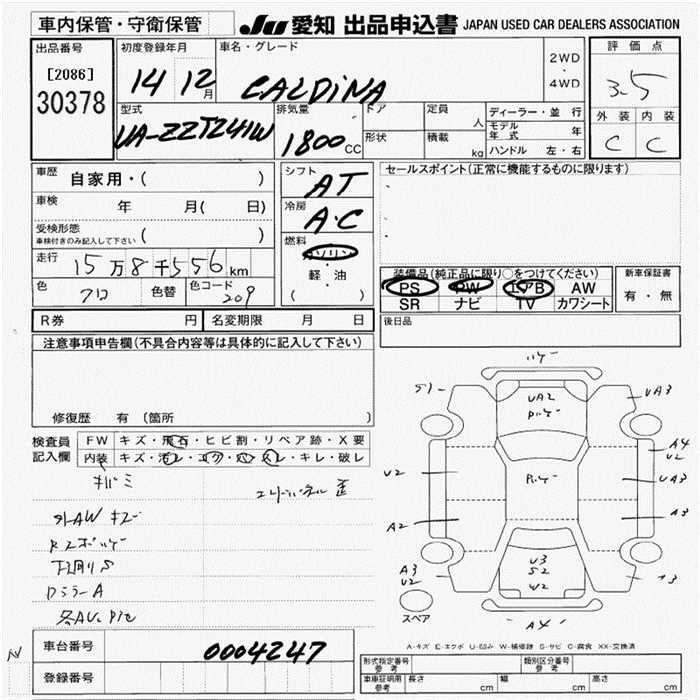 車内保管・守衛保管
JU 愛知 出品申込書 JAPAN USED CAR DEALERS ASSOCIATION
出品番号
[2086]
30378
初度登録年月
14 12月
車名・グレード
CALDINA
2WD
・
4WD
評価点
3.5
外装 内装
C C
型式
UA-ZZT241W
排気量
1800cc
ドア
形状
定員 人
積載 kg
ディーラー・並行
モデル年式 年
ハンドル 左・右
車歴
自家用・( )
車検
年 月( 日)
受検形態
車検付きのみ記入して下さい ( )
走行
15万8千556km
色
クロ
色替
色コード
209
シフト
AT
冷房
A・C
燃料
ガソリン
・
軽・油
( )
セールスポイント(正常に機能するものに限ります)
装備品(純正品に限り○をつけてください)
PS PW エアB AW
SR ナビ TV カワシート
新車保証書
有・無
後日品
R券 円 名変期限 月 日
注意事項申告欄(不具合内容等は具体的に記入して下さい)
修復歴 有 (箇所
検査員記入欄
FW キズ・飛石・ヒビ割・リペア跡・X要
内装 キズ・汚レ・コゲ・穴・スレ・キレ・破レ
キバミ
外AW キズ
下廻りS
DミラーA
ハゲ
S1
UA2
UA3
A4
U2
U2
UA3
A2
A3
A3
U2
U3
S2
W2
A4
スペア
A-キズ E-エクボ U-凹み W-補修跡 S-サビ C-腐食 XX-交換済
車台番号
0004247
登録番号
形式指定番号
参考
類別区分番号
参考
車庫証明用
参考
長さ cm 幅 cm 高さ cm